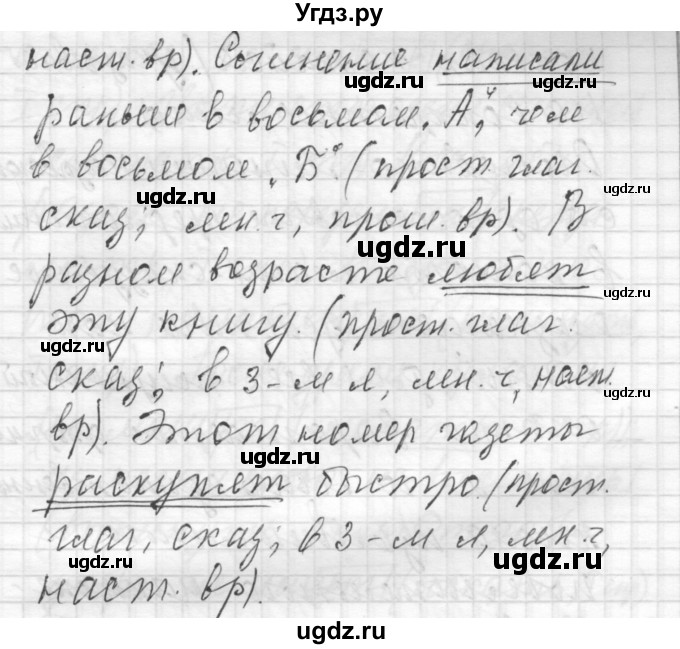 Угдз.ру
наст. вр). Сочинение написали
ugdz.ru ugdz.ru
раньше в восьмом „А“, чем
в восьмом „Б“. (прост. глаг.
ugdz.ru ugdz.ru
сказ; мн. ч, прош. вр). В
ugdz.ru
разном возрасте любят
ugdz.ru
эту книгу. (прост. глаг.
ugdz.ru
сказ; в 3-м л, мн. ч, наст.
ugdz.ru
вр). Этот номер газеты
ugdz.ru
раскупят быстро. (прост.
ugdz.ru
глаг, сказ; в 3-м л, мн. ч,
ugdz.ru ugdz.ru
наст. вр).
ugdz.ru